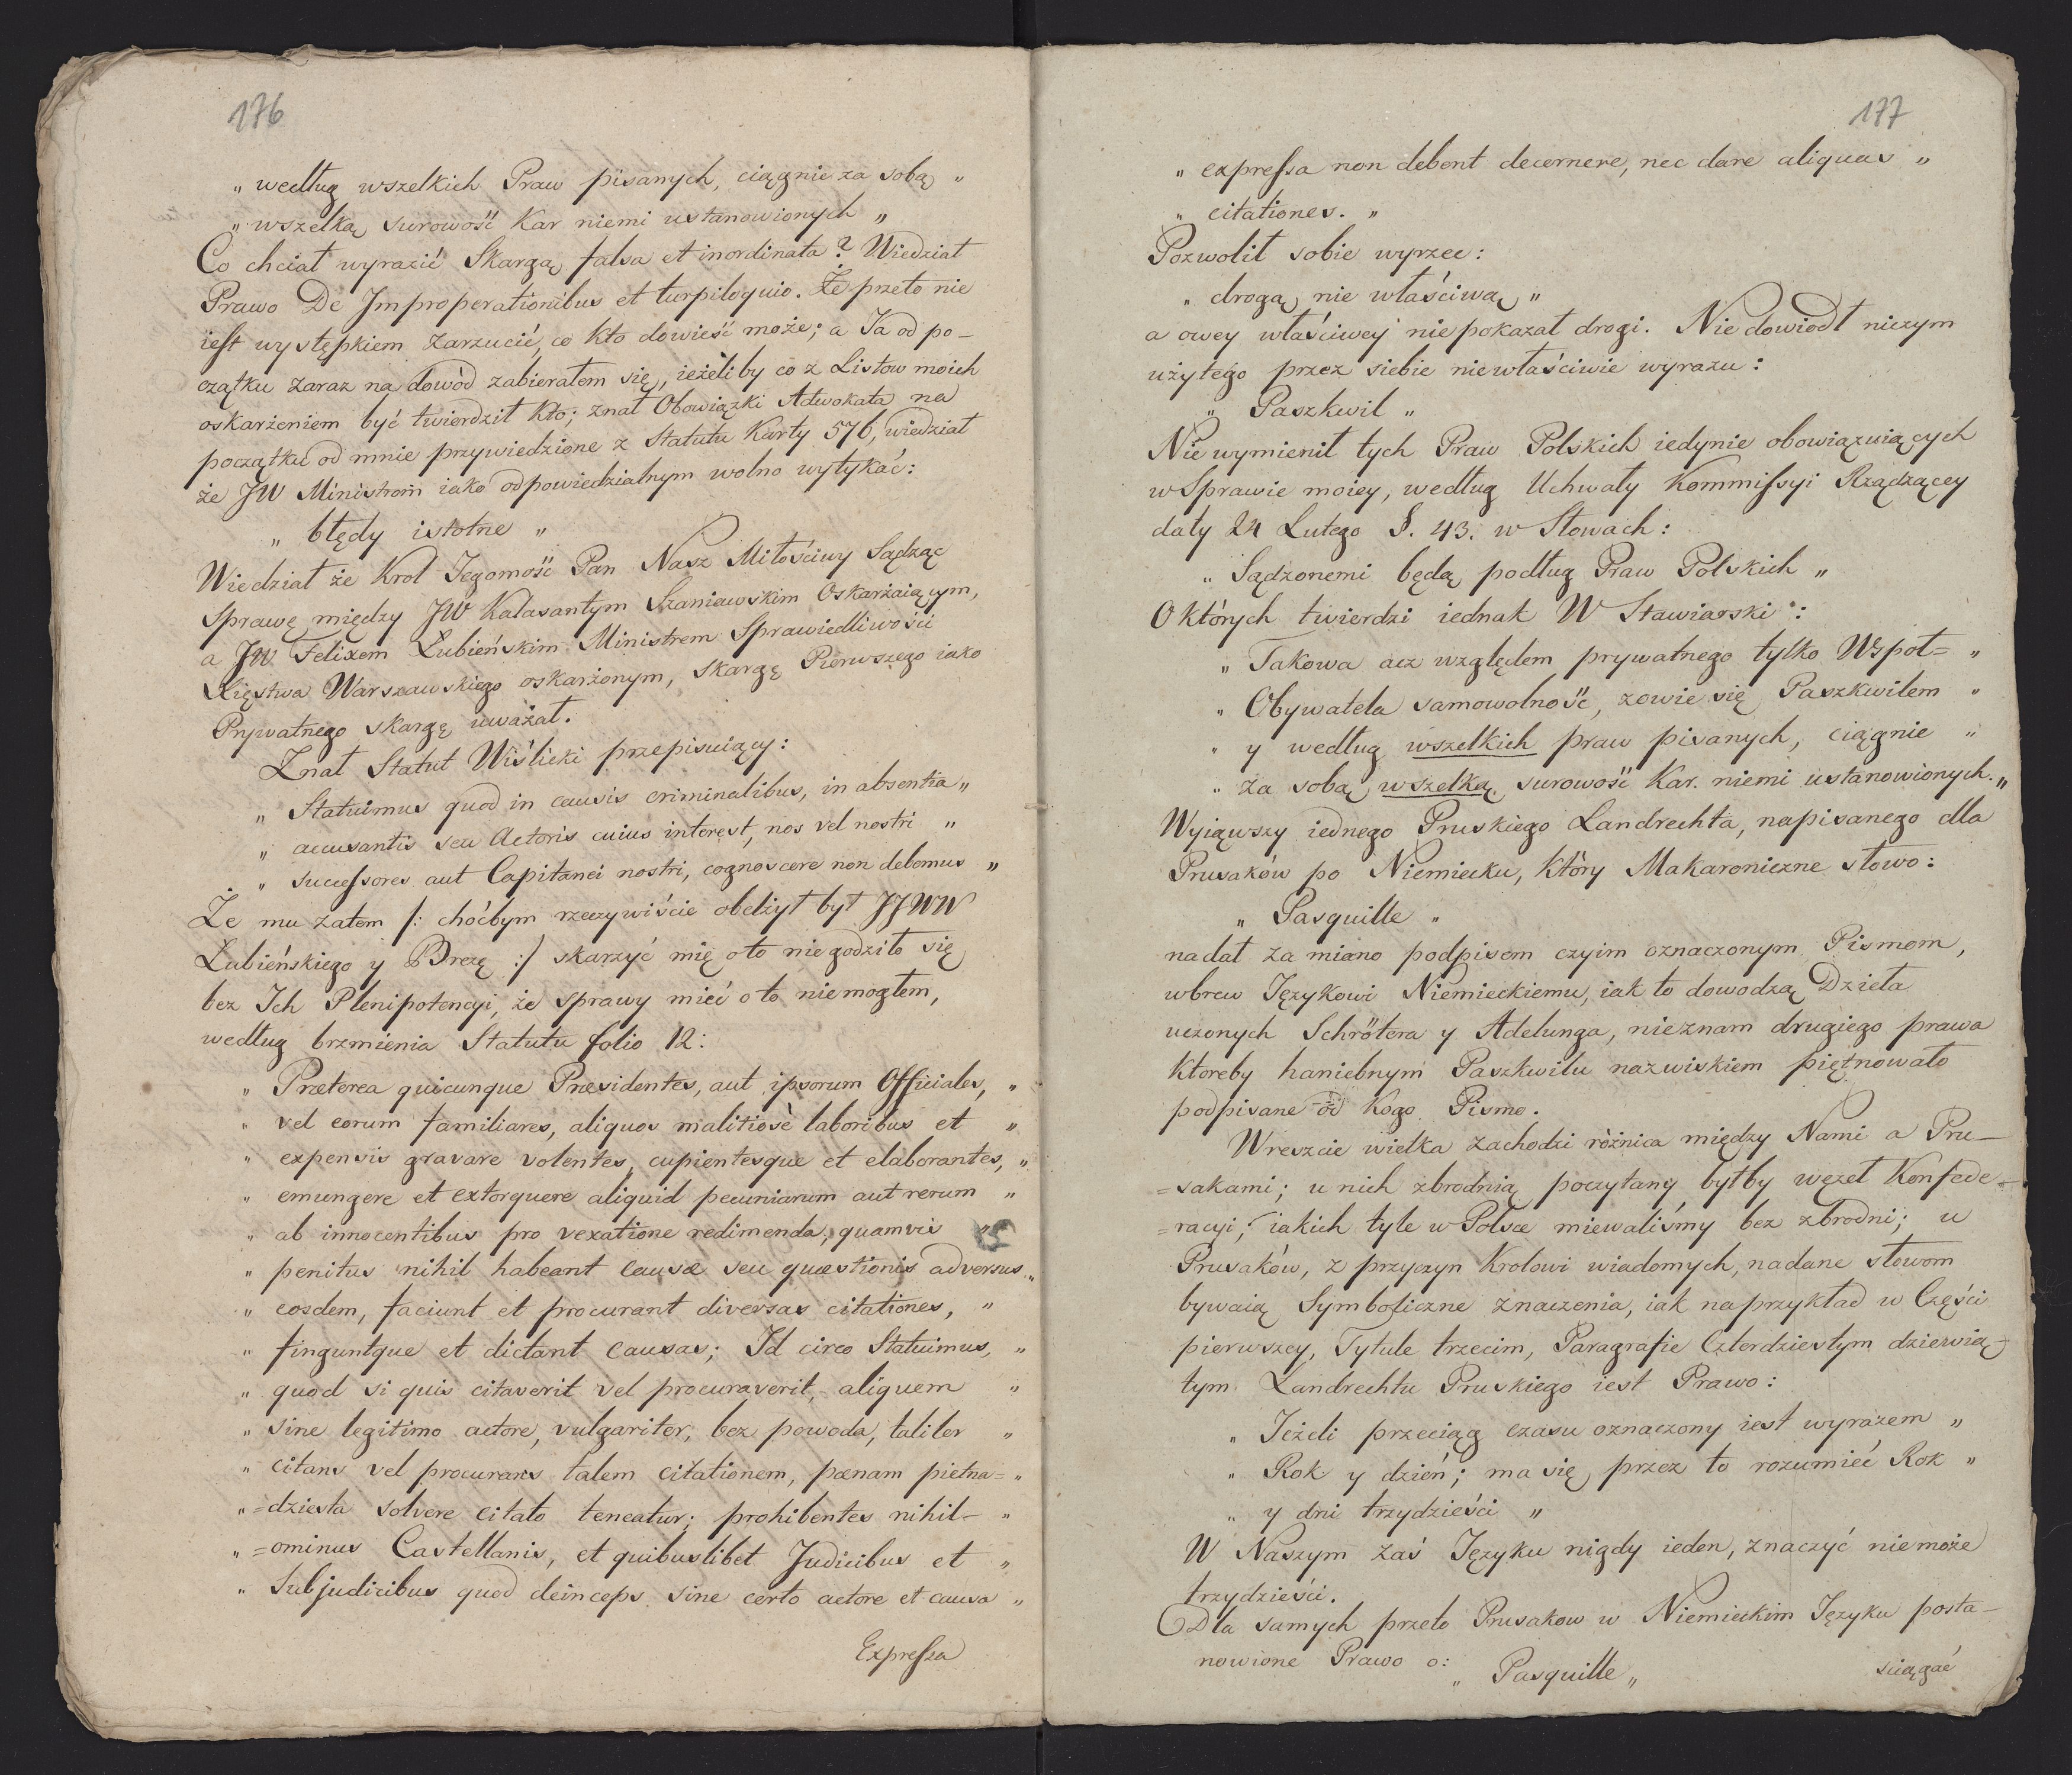 176
„ według wszelkich Praw pisanych, ciągnie za sobą „
„ wszelką surowość Kar niemi ustanowionych „
Co chciał wyrazić Skargą falsa et inordinata? Wiedział
Prawo De Improperationibus et turpiloquio. Że przeto nie
iest występkiem zarzucić, co kto dowieść może; a Ja od po-
czątku zaraz na dowód zabierałem się, ieżeliby co z Listow moich
oskarżeniem być twierdził kto; znał Obowiązki Adwokata na
początku od mnie przywiedzione z Statutu Karty 576, wiedział
że JW Ministrom iako odpowiedzialnym wolno wytykać:
„ błędy istotne „
Wiedział że Krol Jegomość Pan Nasz Miłościwy Sądząc
Sprawę między JW Kalasantym Szaniawskim Oskarżaiącym,
a JW. Felixem Łubieńskim Ministrem Sprawiedliwości
Xięstwa Warszawskiego oskarżonym, skargę Pierwszego iako
Prywatnego skargę uważał.
Znał Statut Wiślicki przepisuiący:
„ Statuimus quod in causis criminalibus, in absentia „
„ accusantis seu Actoris cuius interest, nos vel nostri „
„ successores aut Capitanei nostri, cognoscere non debemus „
Że mu zatem /: choćbym rzeczywiście obelżył był JJWW
Łubieńskiego y Brezę :/ skarzyć mię oto niegodziło się
bez Ich Plenipotencyi, że sprawy mieć oto niemogłem,
według brzmienia Statutu folio 12:
„ Præterea quicunque Præsidentes, aut ipsorum Officiales, „
„ vel eorum familiares, aliquos malitiosè laboribus et „
„ expensis gravare volentes, cupientesque et elaborantes, „
„ emungere et extorquere aliquid pecuniarum aut rerum „
„ ab innocentibus pro vexatione redimenda, quamvis „
„ penitus nihil habeant causæ seu quæstionis adversus „
„ eosdem, faciunt et procurant diversas citationes, „
„ finguntque et dictant causas; Id circo Statuimus, „
„ quod si quis citaverit vel procuraverit, aliquem „
„ sine legitimo actore, vulgariter, bez powoda, taliter „
„ citans vel procurans talem citationem, pœnam pietna= „
„ =dziesta solvere citato teneatur; prohibentes nihil- „
„ =ominus Castellanis, et quibuslibet Judicibus et „
„ Subjudicibus quod deinceps sine certo actore et causa „
Expressa
177
„ expressa non debent decernere, nec dare aliquas „
„ citationes. „
Pozwolił sobie wyrzec:
„ drogą nie właściwą „
a owey właściwey niepokazał drogi. Nie dowiodł niczym
użytego przez siebie niewłaściwie wyrazu:
„ Paszkwil „
Nie wymienił tych Praw Polskich iedynie obowiązuiących
w Sprawie moiey, według Uchwały Kommissyi Rządzącey
daty 24 Lutego §. 43. w Słowach:
„ Sądzonemi będą podług Praw Polskich „
O których twierdzi iednak W Stawiarski:
„ Takowa acz względem prywatnego tylko Wspoł= „
„ Obywatela samowolność, zowie się Paszkwilem „
„ y według wszelkich praw pisanych, ciągnie „
„ za sobą wszelką surowość Kar. niemi ustanowionych. „
Wyiąwszy iednego Pruskiego Landrechta, napisanego dla
Prusaków po Niemiecku, który Makaroniczne słowo:
„ Pasquille „
nadał za miano podpisem czyim oznaczonym Pismom,
wbrew Językowi Niemieckiemu, iak to dowodzą Dzieła
uczonych Schrötera y Adelunga, nieznam drugiego prawa
ktoreby haniebnym Paszkwilu nazwiskiem piętnowało
podpisane od kogo Pismo.
Wreszcie wielka zachodzi różnica między Nami a Pru-
=sakami; u nich zbrodnią poczytany byłby węzeł Konfede-
=racyi; iakich tyle w Polsce miewaliśmy bez zbrodni; u
Prusaków, z przyczyn Krolowi wiadomych, nadane słowom
bywaią Symboliczne znaczenia, iak naprzykład w Części
pierwszey, Tytule trzecim, Paragrafie Czterdziestym dziewią-
tym Landrechtu Pruskiego iest Prawo:
„ Jeżeli przeciąg czasu oznaczony iest wyrazem „
„ Rok y dzień; ma się przez to rozumieć Rok „
„ y dni trzydzieści „
W Naszym zaś Języku nigdy ieden, znaczyć niemoże
trzydzieści.
Dla samych przeto Prusakow w Niemieckim Języku posta-
nowione Prawo o:
„ Pasquille „
sciągać